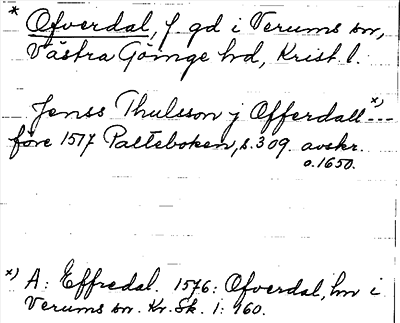 * Ofverdal, f. gd i Verums sn,
Västra Göinge hd, Krist. l.
Jenss Thulsson j Offerdall x) ---
före 1517 Palteboken, s. 309. avskr.
o. 1650.
x) A: Effredal. 1576: Ofverdal, hm i
Verums sn. Kr. Sk. 1: 160.